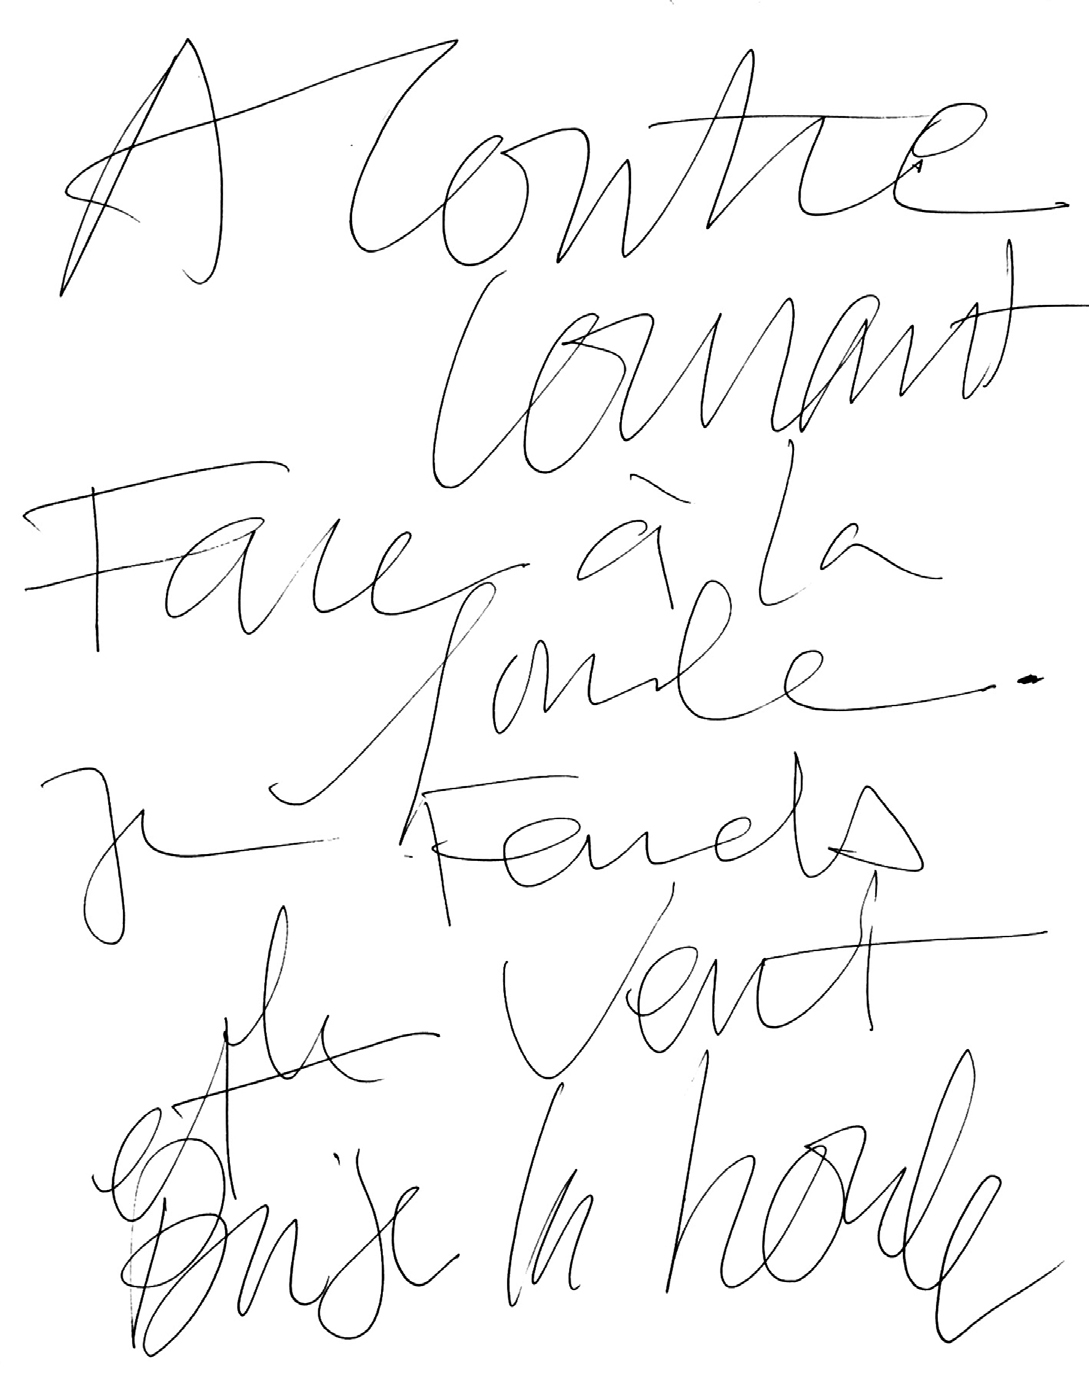 A Contre
Courant
Face à la
foule.
Je Fends
le Vent
et
Brise la houle